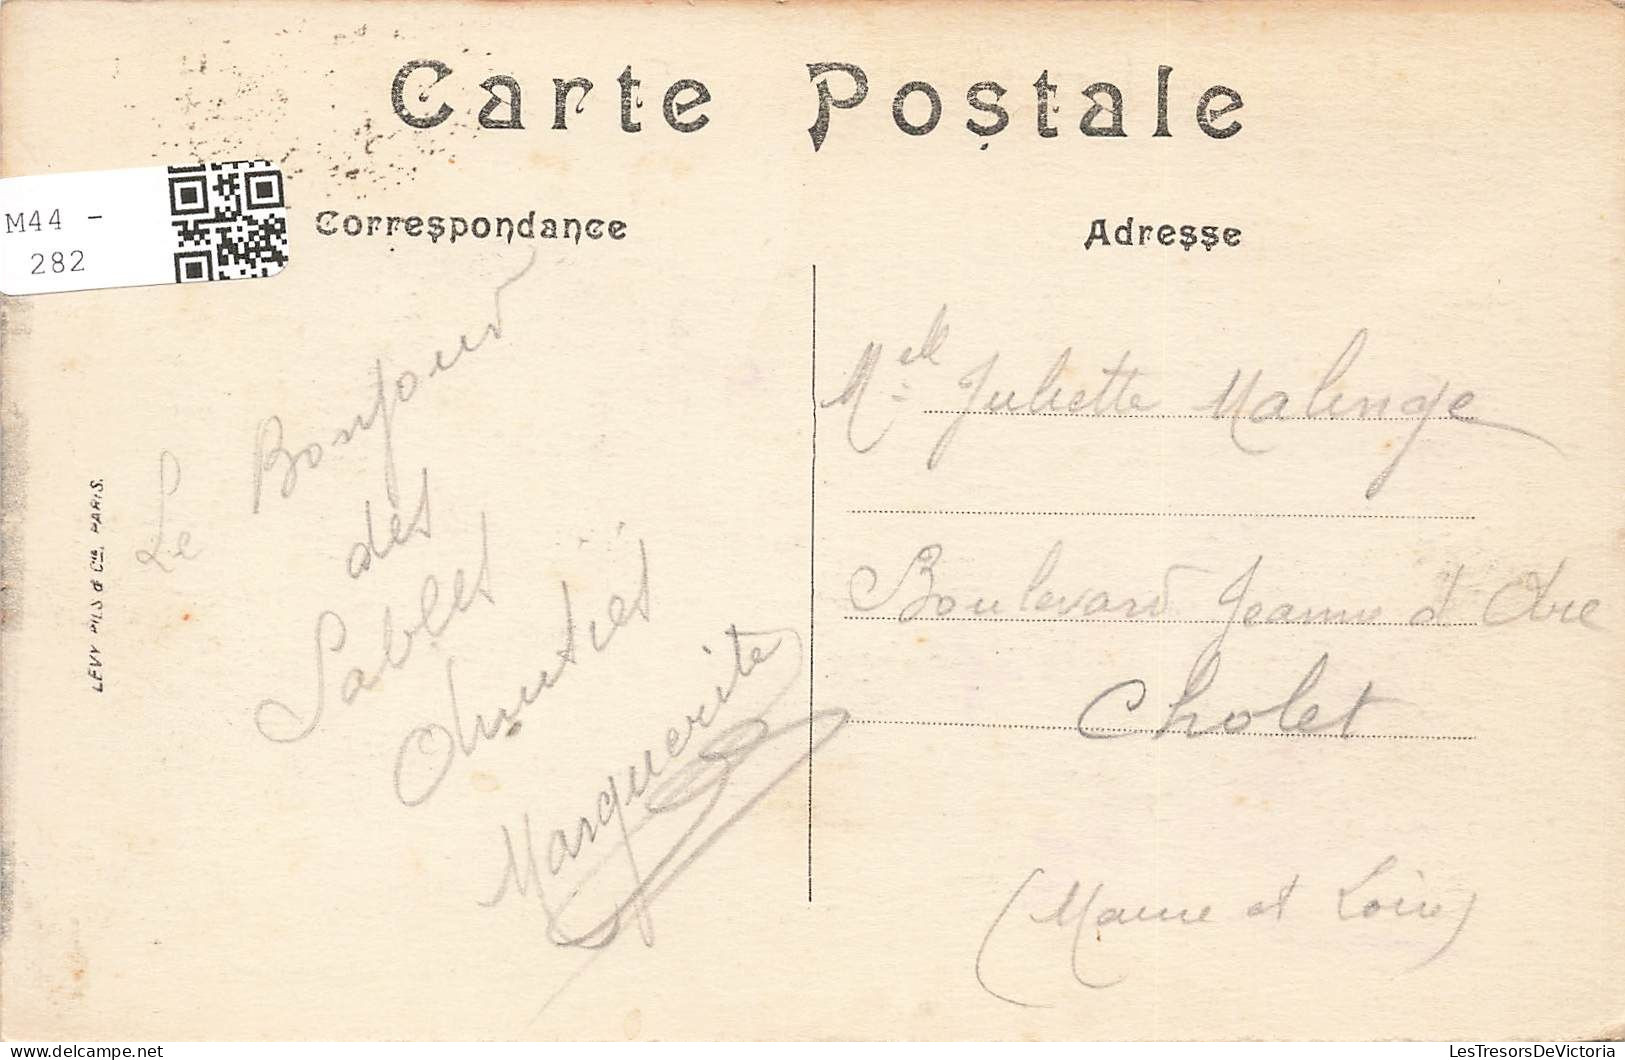 Carte Postale
M44 -
282
Correspondance
Adresse
Le Bonjour
des
Sables
Amities
Marguerite
LEVY FILS & Cie, PARIS.
Melle Juliette Malinge
Boulevard Jeanne d Arc
Cholet
(Maine et Loire)
LesTresorsDeVictoria